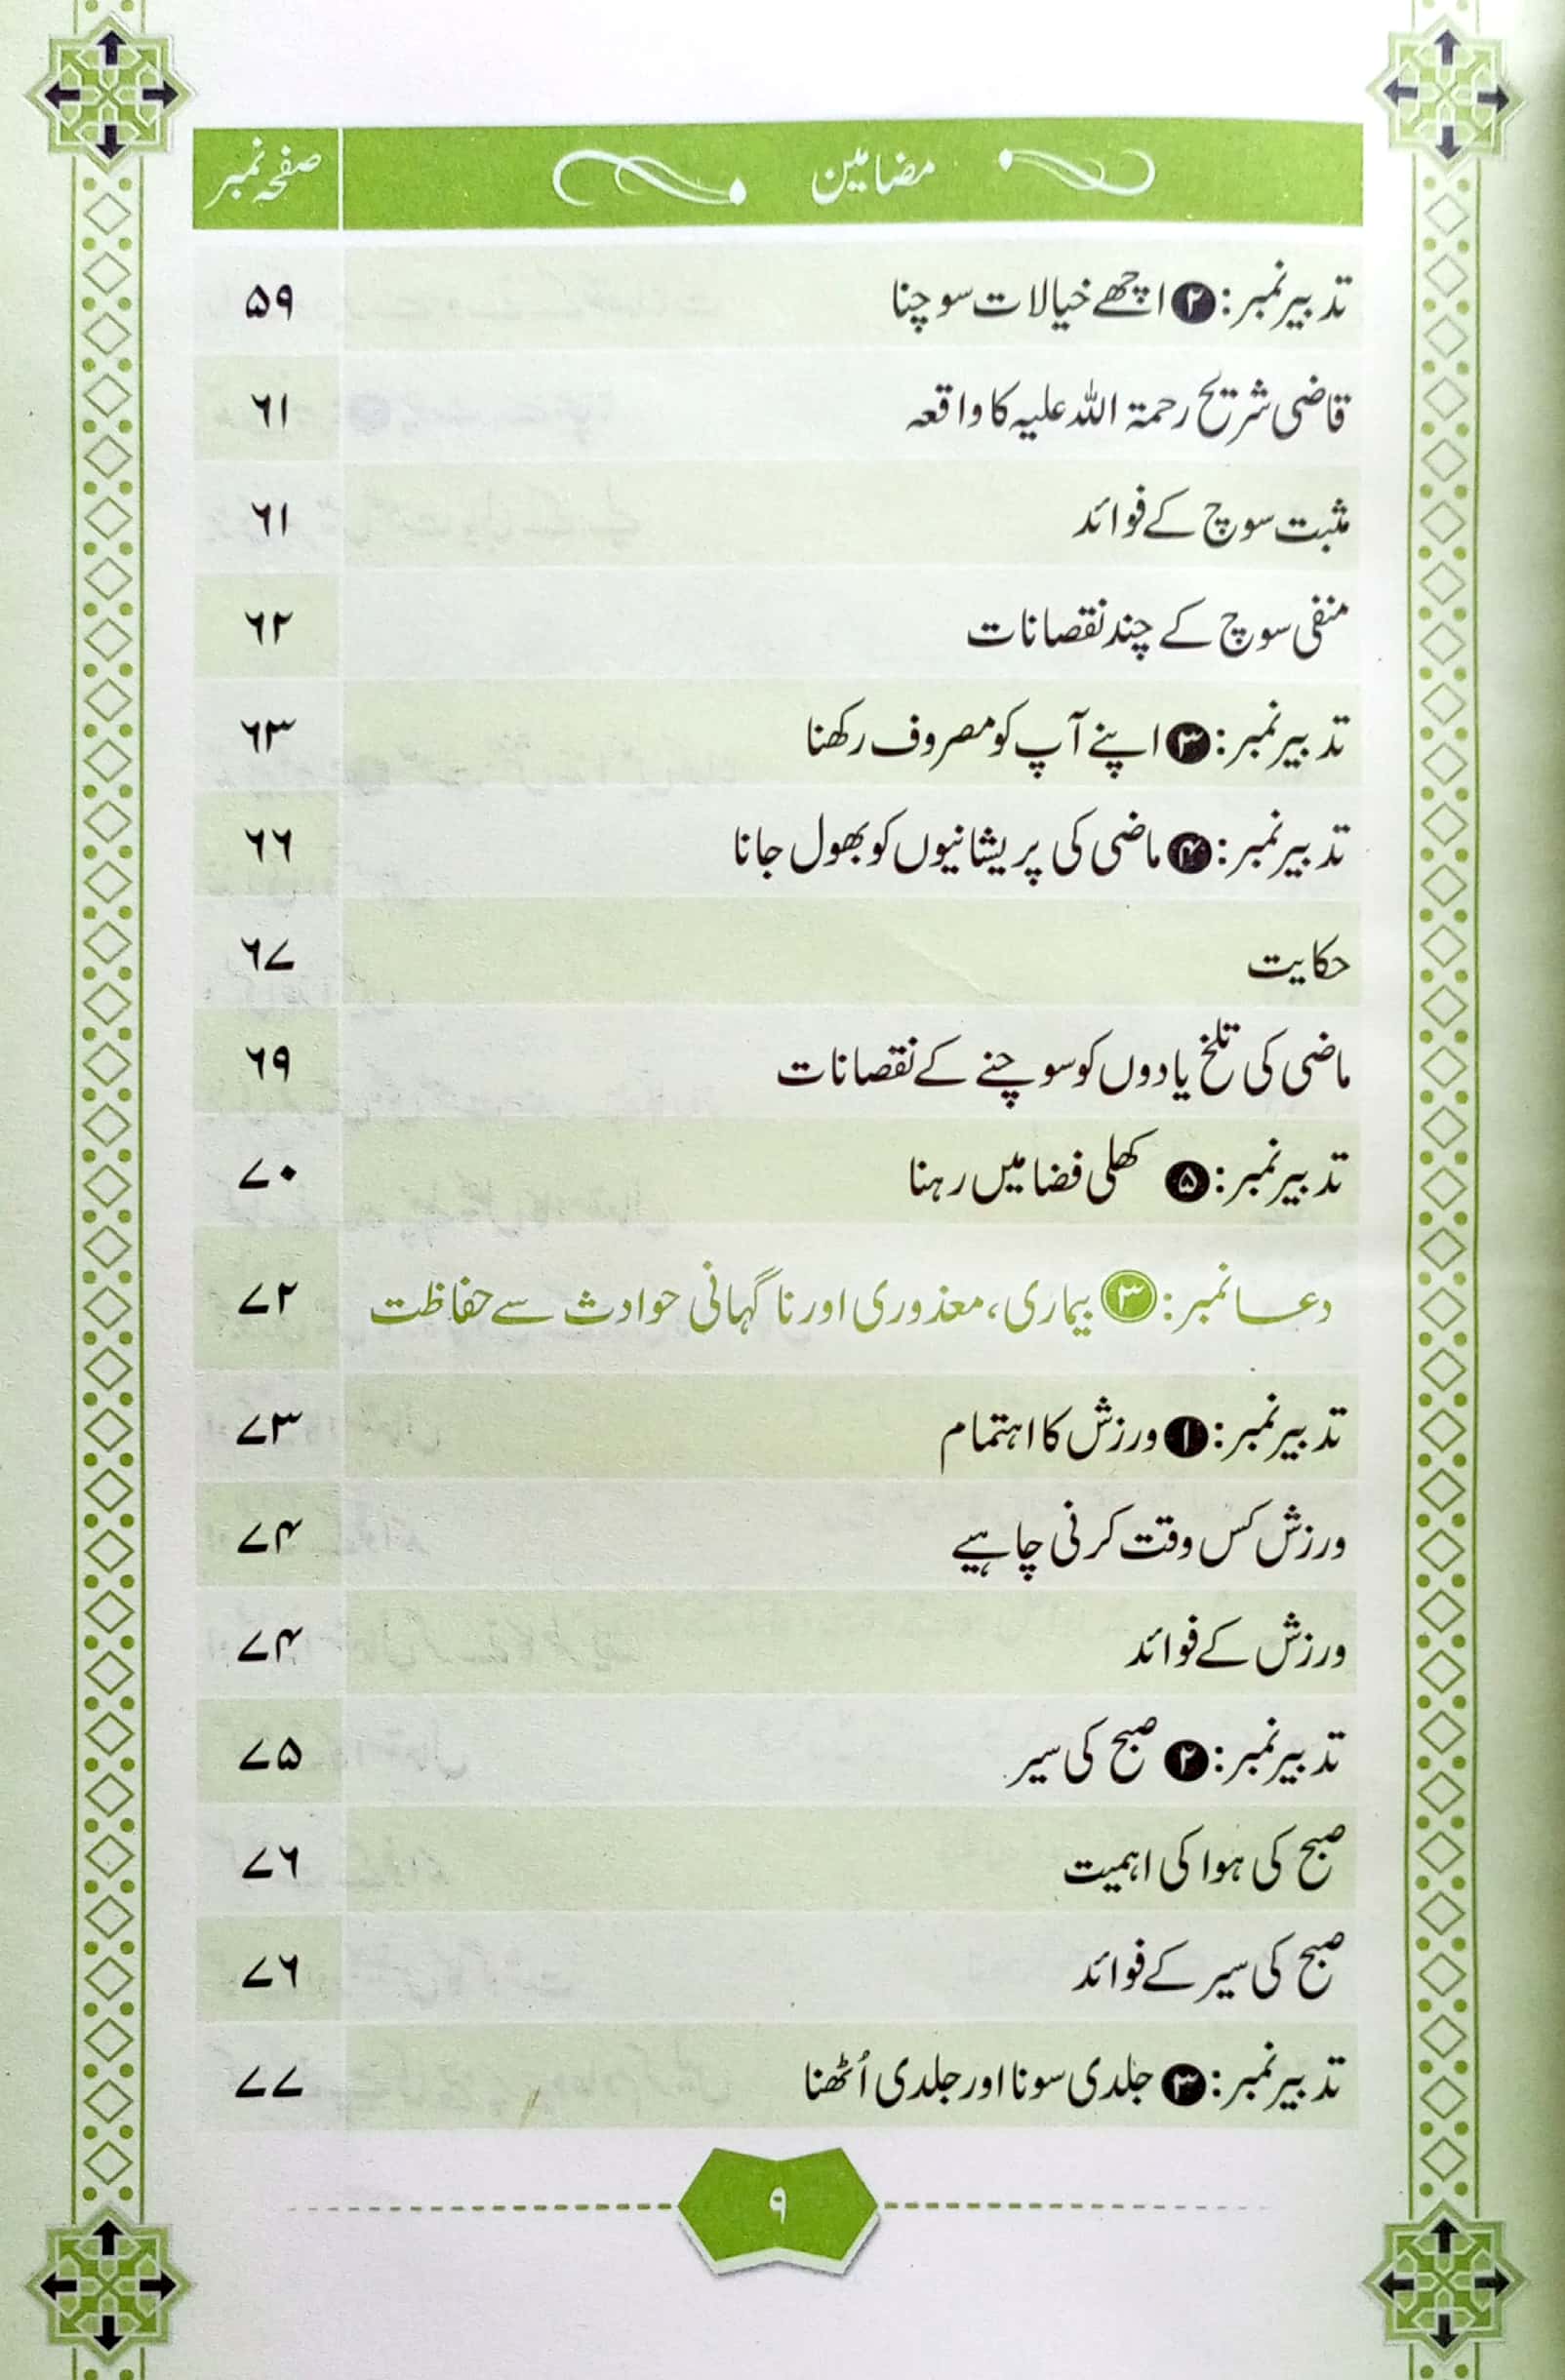 مضامین صفحہ نمبر
تدبیر نمبر: ۲ اچھے خیالات سوچنا ۵۹
قاضی شریح رحمۃ اللہ علیہ کا واقعہ ۶۱
مثبت سوچ کے فوائد ۶۱
منفی سوچ کے چند نقصانات ۶۲
تدبیر نمبر: ۳ اپنے آپ کو مصروف رکھنا ۶۳
تدبیر نمبر: ۴ ماضی کی پریشانیوں کو بھول جانا ۶۶
حکایت ۶۷
ماضی کی تلخ یادوں کو سوچنے کے نقصانات ۶۹
تدبیر نمبر: ۵ کھلی فضا میں رہنا ۷۰
دعا نمبر: ۳ بیماری، معذوری اور ناگہانی حوادث سے حفاظت ۷۲
تدبیر نمبر: ۱ ورزش کا اہتمام ۷۳
ورزش کس وقت کرنی چاہیے ۷۴
ورزش کے فوائد ۷۴
تدبیر نمبر: ۲ صبح کی سیر ۷۵
صبح کی ہوا کی اہمیت ۷۶
صبح کی سیر کے فوائد ۷۶
تدبیر نمبر: ۳ جلدی سونا اور جلدی اُٹھنا ۷۷
۹